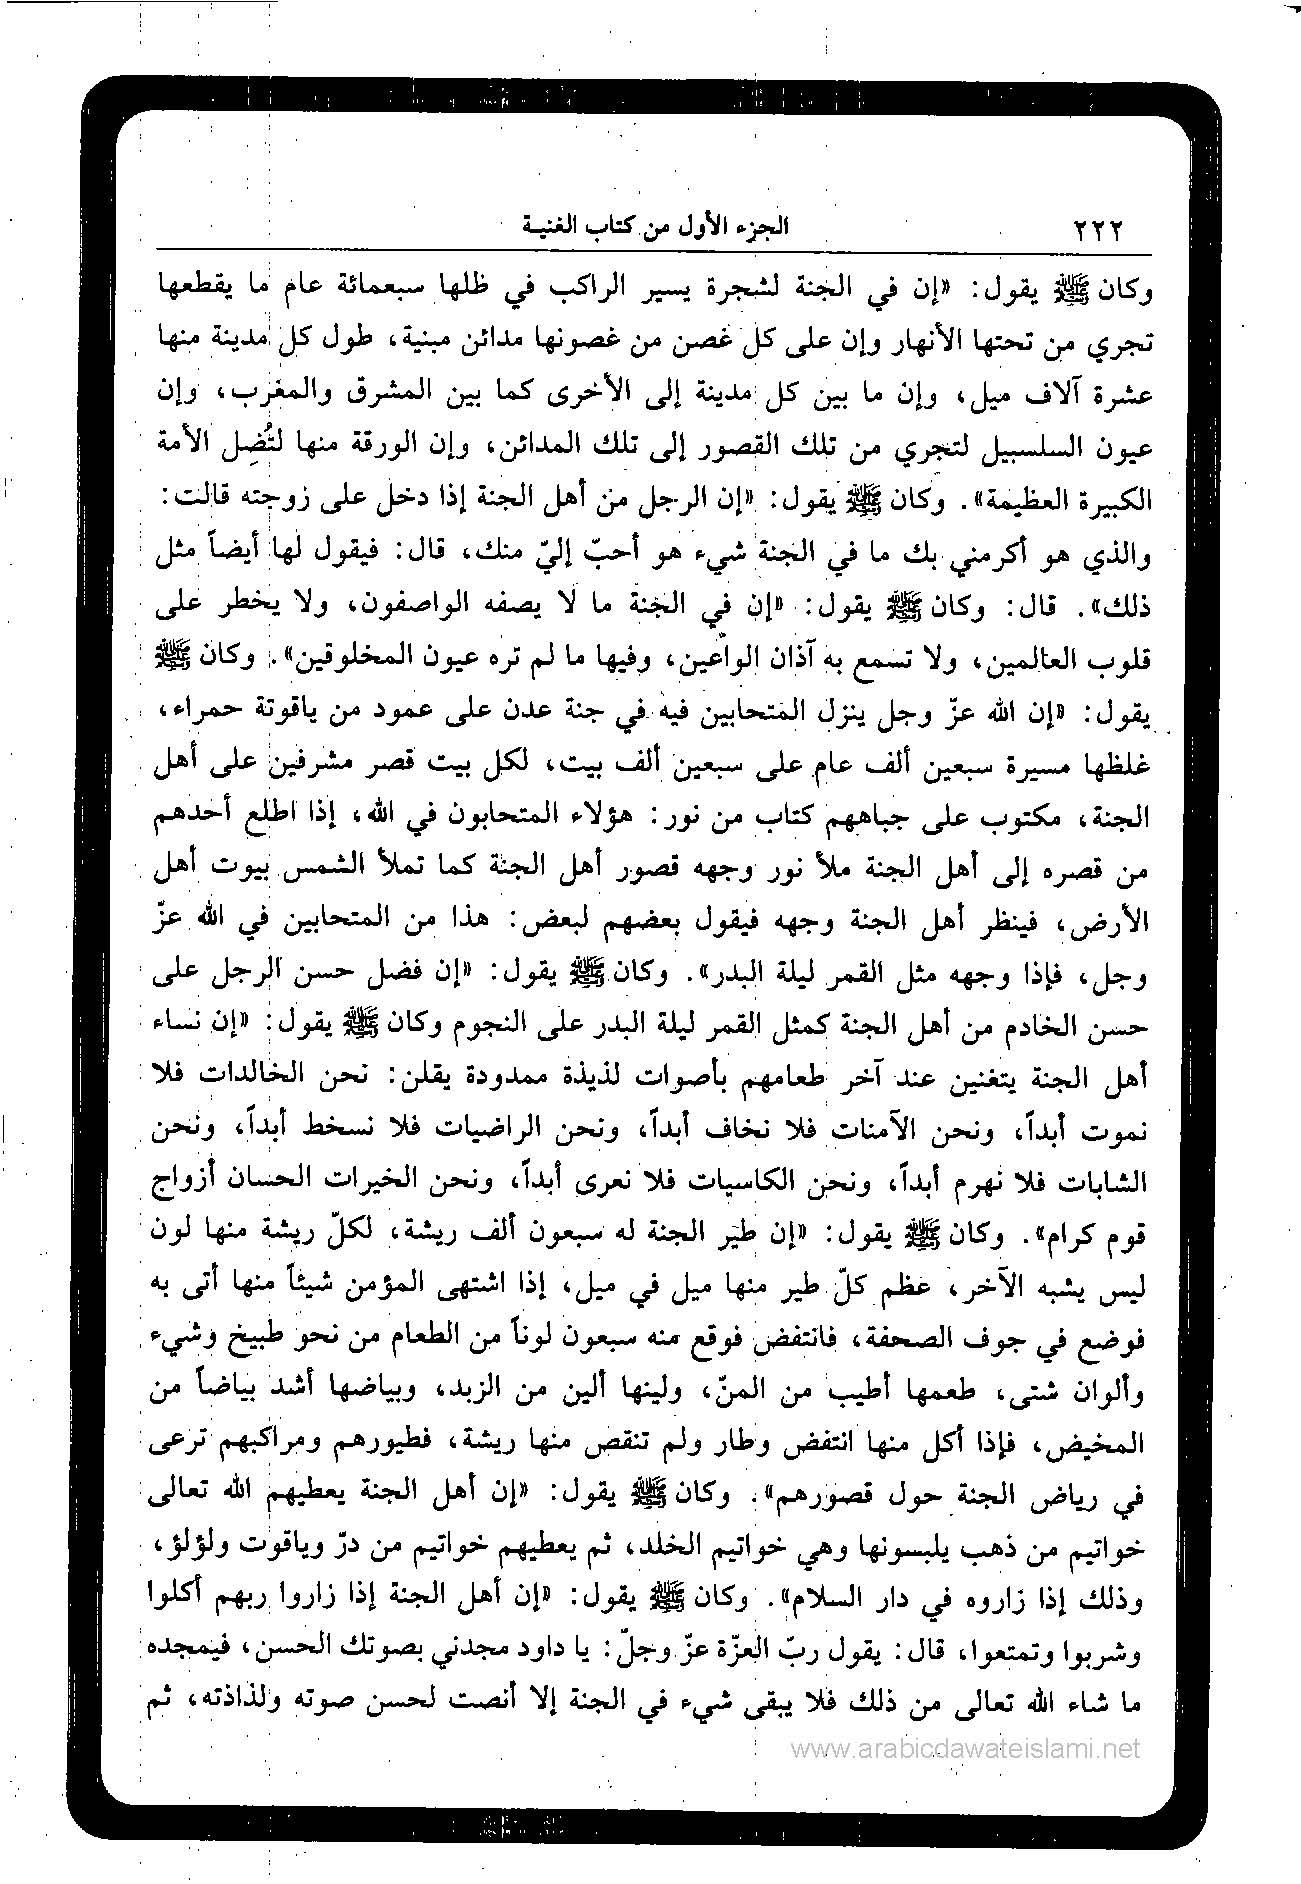 ٢٢٢
الجزء الأول من كتاب الغنية
وكان ﷺ يقول: «إن في الجنة لشجرة يسير الراكب في ظلها سبعمائة عام ما يقطعها
تجري من تحتها الأنهار وإن على كل غصن من غصونها مدائن مبنية، طول كل مدينة منها
عشرة آلاف ميل، وإن ما بين كل مدينة إلى الأخرى كما بين المشرق والمغرب، وإن
عيون السلسبيل لتجري من تلك القصور إلى تلك المدائن، وإن الورقة منها لتُضِل الأمة
الكبيرة العظيمة». وكان ﷺ يقول: «إن الرجل من أهل الجنة إذا دخل على زوجته قالت:
والذي هو أكرمني بك ما في الجنة شيء هو أحبّ إليّ منك، قال: فيقول لها أيضاً مثل
ذلك». قال: وكان ﷺ يقول: «إن في الجنة ما لا يصفه الواصفون، ولا يخطر على
قلوب العالمين، ولا تسمع به آذان الواعين، وفيها ما لم تره عيون المخلوقين». وكان ﷺ
يقول: «إن الله عزّ وجل ينزل المتحابين فيه في جنة عدن على عمود من ياقوتة حمراء،
غلظها مسيرة سبعين ألف عام على سبعين ألف بيت، لكل بيت قصر مشرفين على أهل
الجنة، مكتوب على جباههم كتاب من نور: هؤلاء المتحابون في الله، إذا اطلع أحدهم
من قصره إلى أهل الجنة ملأ نور وجهه قصور أهل الجنة كما تملأ الشمس بيوت أهل
الأرض، فينظر أهل الجنة وجهه فيقول بعضهم لبعض: هذا من المتحابين في الله عزّ
وجل، فإذا وجهه مثل القمر ليلة البدر». وكان ﷺ يقول: «إن فضل حسن الرجل على
حسن الخادم من أهل الجنة كمثل القمر ليلة البدر على النجوم وكان ﷺ يقول: «إن نساء
أهل الجنة يتغنين عند آخر طعامهم بأصوات لذيذة ممدودة يقلن: نحن الخالدات فلا
نموت أبداً، ونحن الآمنات فلا نخاف أبداً، ونحن الراضيات فلا نسخط أبداً، ونحن
الشابات فلا نهرم أبداً، ونحن الكاسيات فلا نعرى أبداً، ونحن الخيرات الحسان أزواج
قوم كرام». وكان ﷺ يقول: «إن طير الجنة له سبعون ألف ريشة، لكلّ ريشة منها لون
ليس يشبه الآخر، عظم كلّ طير منها ميل في ميل، إذا اشتهى المؤمن شيئاً منها أتى به
فوضع في جوف الصحفة، فانتفض فوقع منه سبعون لوناً من الطعام من نحو طبيخ وشيء
وألوان شتى، طعمها أطيب من المنّ، ولينها ألين من الزبد، وبياضها أشد بياضاً من
المخيض، فإذا أكل منها انتفض وطار ولم تنقص منها ريشة، فطيورهم ومراكبهم ترعى
في رياض الجنة حول قصورهم». وكان ﷺ يقول: «إن أهل الجنة يعطيهم الله تعالى
خواتيم من ذهب يلبسونها وهي خواتيم الخلد، ثم يعطيهم خواتيم من درّ وياقوت ولؤلؤ،
وذلك إذا زاروه في دار السلام». وكان ﷺ يقول: «إن أهل الجنة إذا زاروا ربهم أكلوا
وشربوا وتمتعوا، قال: يقول ربّ العزّة عزّ وجلّ: يا داود مجدني بصوتك الحسن، فيمجده
ما شاء الله تعالى من ذلك فلا يبقى شيء في الجنة إلا أنصت لحسن صوته ولذاذته، ثم
www.arabicdawateislami.net